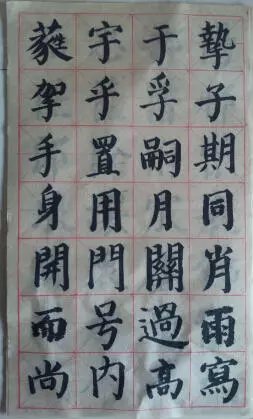 摯子期同肖雨寫
于孚嗣月關過高
宇乎置用門号内
手身開而尚